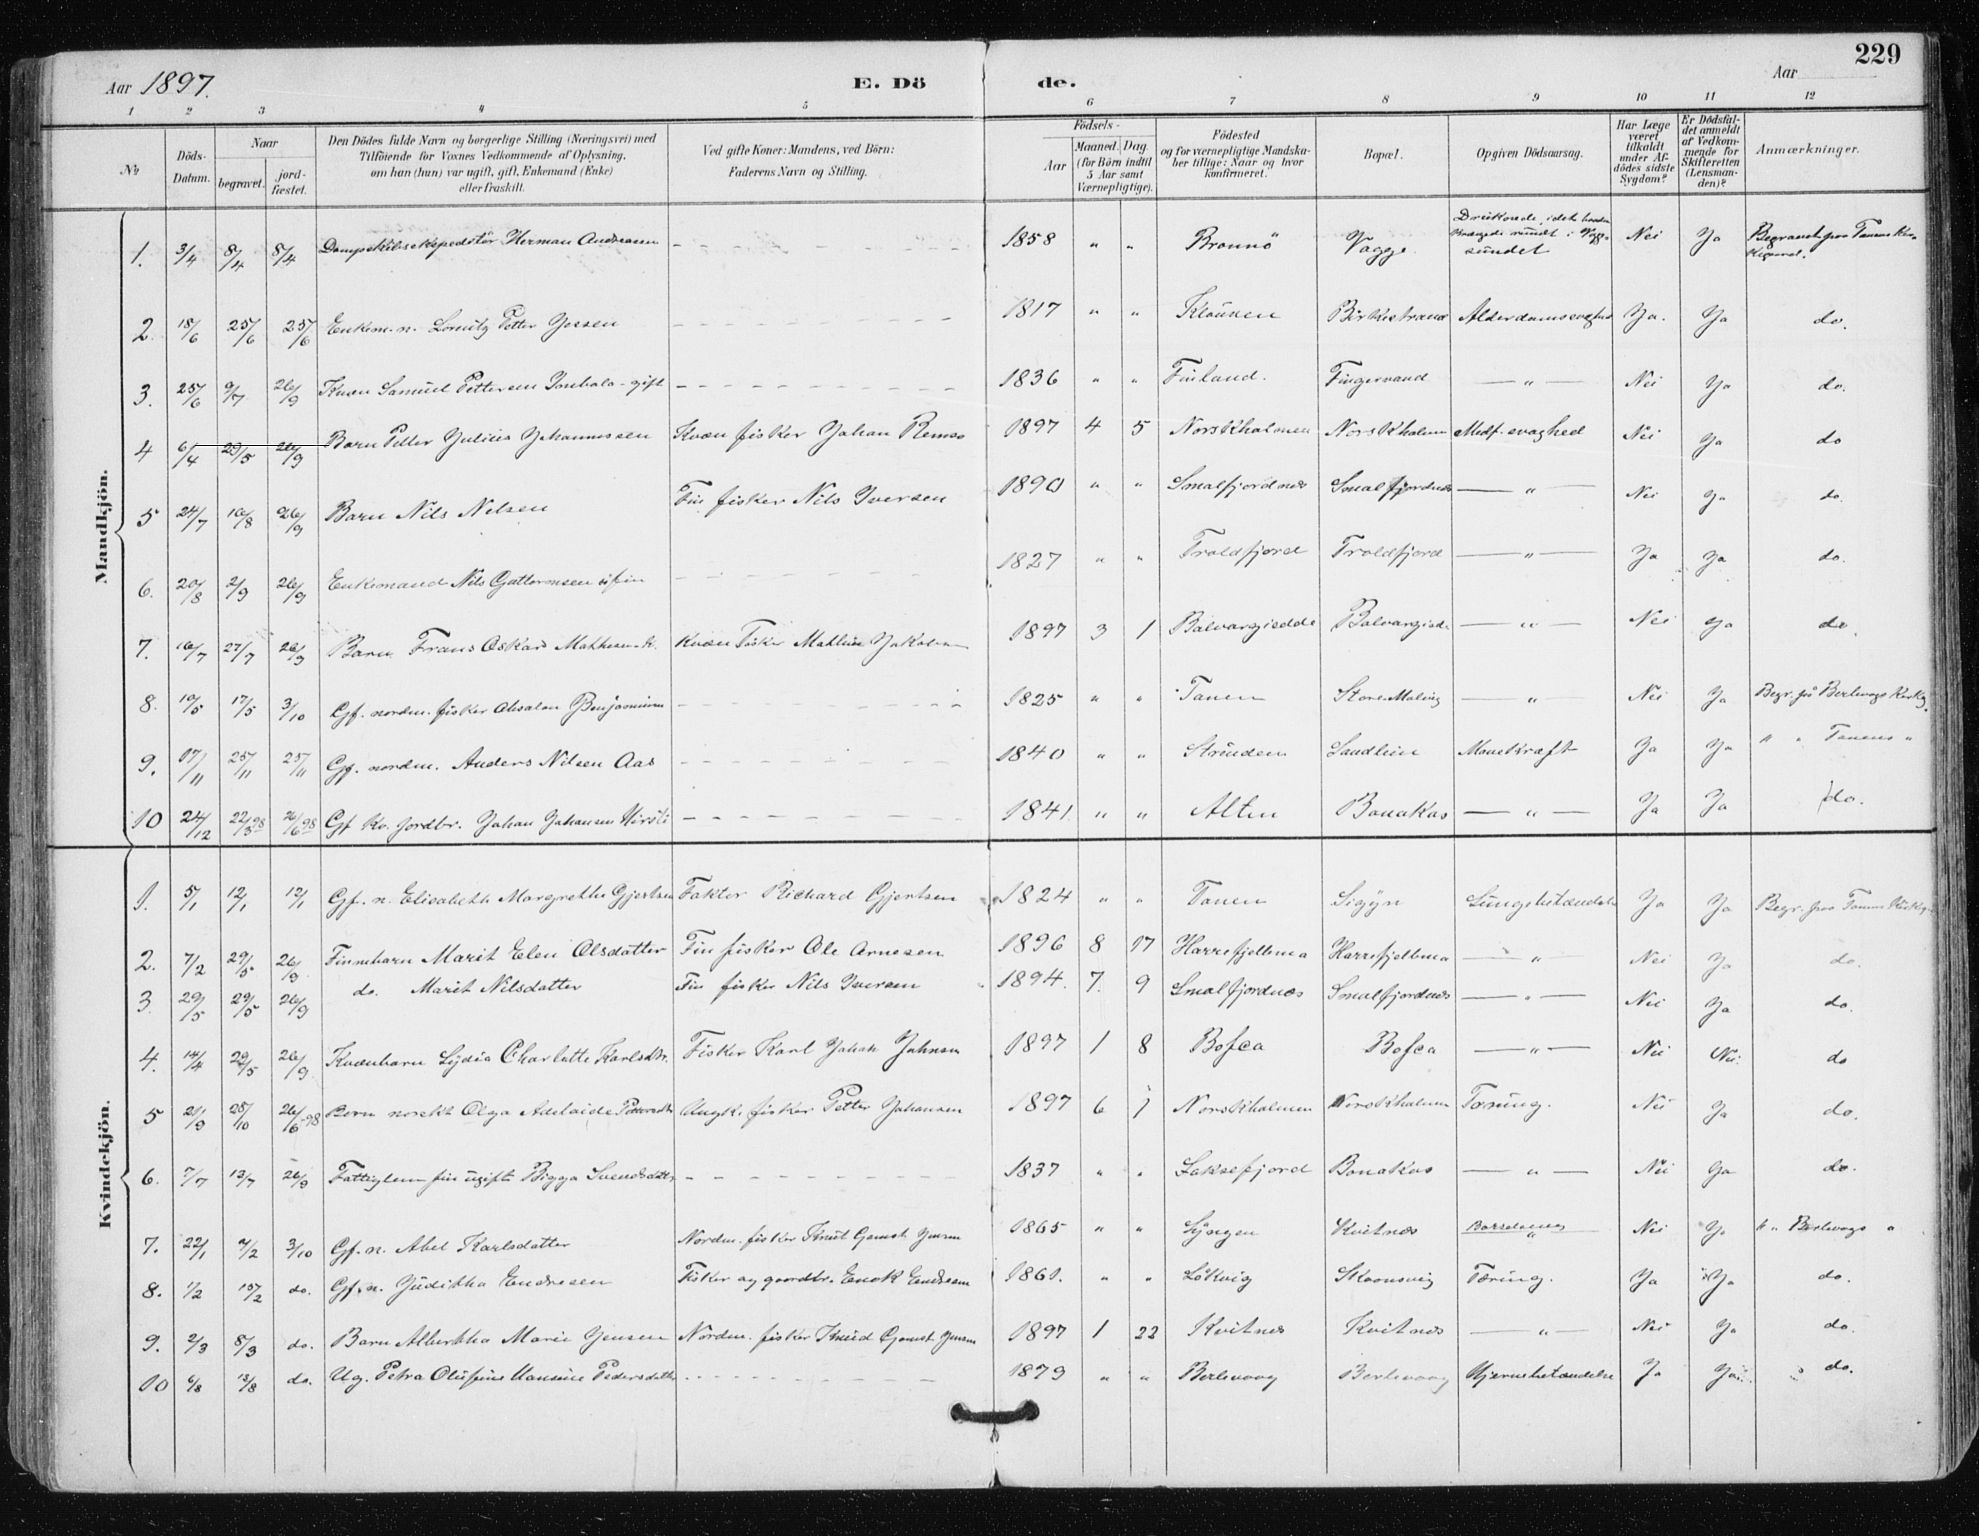 229
Aar 1897. E. Dö de. Aar
1 2 3 4 5 6 7 8 9 10 11 12
No
Döds-Datum.
Naar
begravet. jord-fæstet.
Den Dödes fulde Navn og borgerlige Stilling (Næringsvei) med
Tilföiende for Voxnes Vedkommende af Oplysning,
om han (hun) var ugift, gift, Enkemand (Enke)
eller fraskilt.
Ved gifte Koner: Mandens, ved Börn:
Faderens Navn og Stilling.
Födsels-
Aar Maaned. Dag.
(for Börn indtil
5 Aar samt
Værnepligtige).
Födested
og for vernepligtige Mandska-
ber tillige: Naar og hvor
konfirmeret.
Bopæl.
Opgiven Dödsaarsag.
Har Læge
været
tilkaldt
under Af-
dödes sidste
Sygdom?
Er Dödsfal-
det anmeldt
af Vedkom-
mende for
Skifteretten
(Lensman-
den)?
Anmærkninger.
Mandkjön.
1. 3/4 8/4 8/4 Dampskibsekspeditör Herman Andreasen 1858 " " Brønnö Vagge sundet Nei Ja
2. 18/6 25/6 25/6 Enkem. n. Lorentz Petter Jessen 1817 " " Klöunen Birkestrand Alderdomssvaghed Ja. Ja do.
3. 25/6 9/7 26/9 Kvæn Samuel Pettersen - gift 1836 " " Finland. Fingervand — " — Nei Ja do.
4 6/4 29/5 26/9 Barn Petter Julius Johannessen Kvæn fisker Johan Remso 1897 4 5 Norskholmen Norskholmen Medf. svaghed Nei Ja do
5 24/7 16/8 26/9 Barn Nils Nilsen Fin fisker Nils Iversen 1890 " " Smalfjordnes Smalfjordnes — " — Nei Ja do.
6. 20/8 2/9 26/9 Enkemand Nils Guttormsen fin 1827 " " Troldfjord Troldfjord — " — Ja Ja do.
7. 16/7 27/7 26/9 Barn Frans Oskar Mathisen Kvæn Fisker 1897 3 1 Balvargiedde — " — Nei Ja do.
8. 10/5 17/5 3/10 Gf. nordm. fisker Absalon Benjaminsen 1825 " " Tanen Store Molvig — " — Nei Ja Begr. på Berlevogs Kirkeg.
9. 17/11 25/11 25/11 Gf. nordm. Anders Nilsen Aas 1840 " " Strinden Sandlien Mavekræft Ja Ja " " Tanens "
10 24/12 22/3 98 26/6 98 Gf. kv. jordbr. Johan Johansen 1841. " " Alten Bonakas — " — Ja Ja do.
Kvindekjön.
1. 5/1 12/1 12/1 Gf. n. Elisabeth Margrethe Gjertsen Faktor Richard Gjertsen 1824 " " Tanen Lungebetændelse Ja Ja Begr. paa Tanens Kirkeg.
2. 7/2 29/5 26/9 Finnebarn Marit Elen Olsdatter Fin fisker Ole Arnesen 1896 8 17 Harrefjellma Harrefjellma — " — Nei Ja do.
3. 29/5 29/5 26/9 do. Marit Nilsdatter Fin fisker Nils Iversen 1894. 7. 9 Smalfjordnæs Smalfjordnæs — " — Nei Ja do.
4. 14/4 29/5 26/9 Kvænbarn Lydia Charlotte Karlsdtr. Fisker Karl Johan Johnsen 1897 1 8 Bofca Bofca — " — Nei Nei do
5 21/9 28/10 26/6-98 Barn norskt Olga Adelaide Pettersdtr Ungk. fisker Petter Johansen 1897 6 1 Norskholmen Norskholmen Tæring. Nei Ja do.
6. 7/7 13/7 26/9 Fattiglem fin ugift Bigga Svendsdatter 1837 " " Laksefjord Bonakas — " — Nei Ja do.
7. 22/1 2/2 3/10 Gf. n. Abel Karlsdatter Nordm. fisker Knut Gamst Jensen 1865 " " Lyngen Kvitnes Barselseng Nei Ja " " Berlevogs "
8. 1/2 15/2 do. Gf. n. Juditha Endresen Fisker og gaardbr. Enok Endresen 1861. " " Lökvig Skonsvig Tæring. Ja Ja do.
9. 2/3 8/3 do. Barn Albertha Marie Jensen Nordm. fisker Knud Gamst Jensen 1897 1 22 Kvitnes Kvitnæs — " — Nei Ja do.
10 6/8 13/8 do. Ug. Petra Olufine Hansine Pedersdatter 1879 " " Berlevaag Berlevaag Hjernebetændelse Ja Ja do.